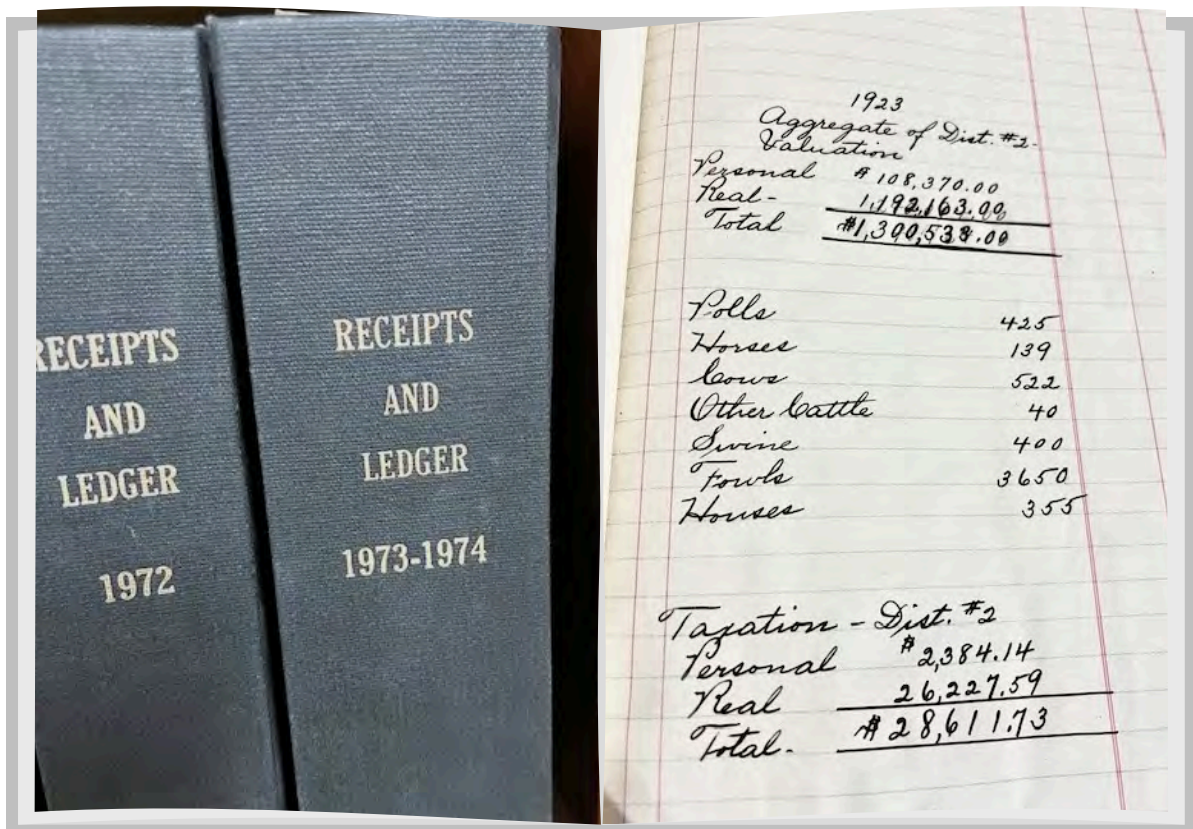 RECEIPTS
AND
LEDGER
1972
RECEIPTS
AND
LEDGER
1973-1974
1923
Aggregate of Dist. #2-
Valuation
Personal $108,370.00
Real- 1,192,163.00
Total $1,300,533.00
Polls 425
Horses 139
Cows 522
Other Cattle 40
Swine 400
Fowls 3650
Houses 355
Taxation - Dist. #2
Personal $2,384.14
Real 26,227.59
Total- $28,611.73